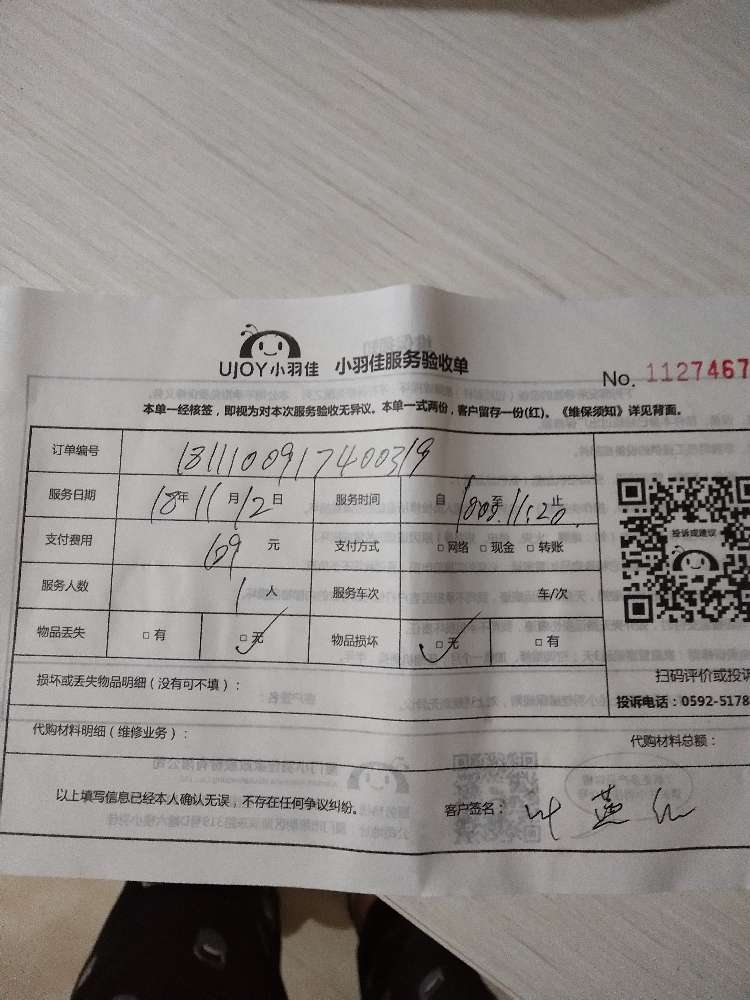 UJOY小羽佳 小羽佳服务验收单
No. 1127467
本单一经核签，即视为对本次服务验收无异议。本单一式两份，客户留存一份(红)。《维保须知》详见背面。
订单编号 181110091740039
服务日期 18年11月12日 服务时间 自 至 11:20 止
支付费用 69 元 支付方式 □网络 □现金 □转账
服务人数 1 人 服务车次 车/次
物品丢失 □有 □无 物品损坏 □无 □有
投诉或建议
扫码评价或投诉
投诉电话：0592-5178
损坏或丢失物品明细（没有可不填）：
代购材料明细（维修业务）： 代购材料总额：
以上填写信息已经本人确认无误，不存在任何争议纠纷。 客户签名： 叶